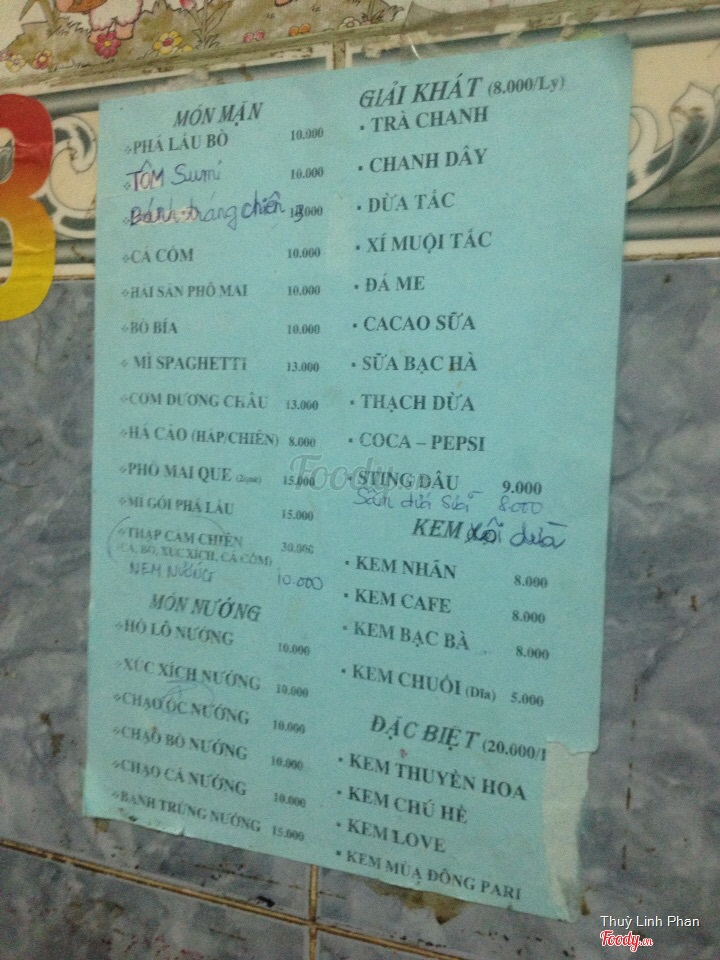 MÓN MẶN
PHÁ LẤU BÒ 10.000
TÔM Sumi 10.000
Bánh tráng chiên 13000
CÁ CỐM 10.000
HẢI SẢN PHÔ MAI 10.000
BÒ BÍA 10.000
MÌ SPAGHETTI 13.000
CƠM DƯƠNG CHÂU 13.000
HÁ CẢO (HẤP/CHIÊN) 8.000
PHÔ MAI QUE 15.000
MÌ GÓI PHÁ LẤU 15.000
THẬP CẨM CHIÊN 30.000
(CÁ, BÒ, XÚC XÍCH, CÁ CỐM)
NEM NƯỚNG 10.000
MÓN NƯỚNG
HỒ LÔ NƯỚNG 10.000
XÚC XÍCH NƯỚNG 10.000
CHẠO ỐC NƯỚNG 10.000
CHẠO BÒ NƯỚNG 10.000
CHẠO CÁ NƯỚNG 10.000
BÁNH TRỨNG NƯỚNG 15.000
GIẢI KHÁT (8.000/Ly)
TRÀ CHANH
CHANH DÂY
DỪA TẮC
XÍ MUỘI TẮC
ĐÁ ME
CACAO SỮA
SỮA BẠC HÀ
THẠCH DỪA
COCA – PEPSI
STING DÂU 9.000
8.000
KEM xôi dừa
KEM NHÃN 8.000
KEM CAFE 8.000
KEM BẠC BÀ 8.000
KEM CHUỐI (Dĩa) 5.000
ĐẶC BIỆT (20.000/1
KEM THUYỀN HOA
KEM CHÚ HỀ
KEM LOVE
KEM MÙA ĐÔNG PARI
Foody.vn
Thuỳ Linh Phan
Foody.vn